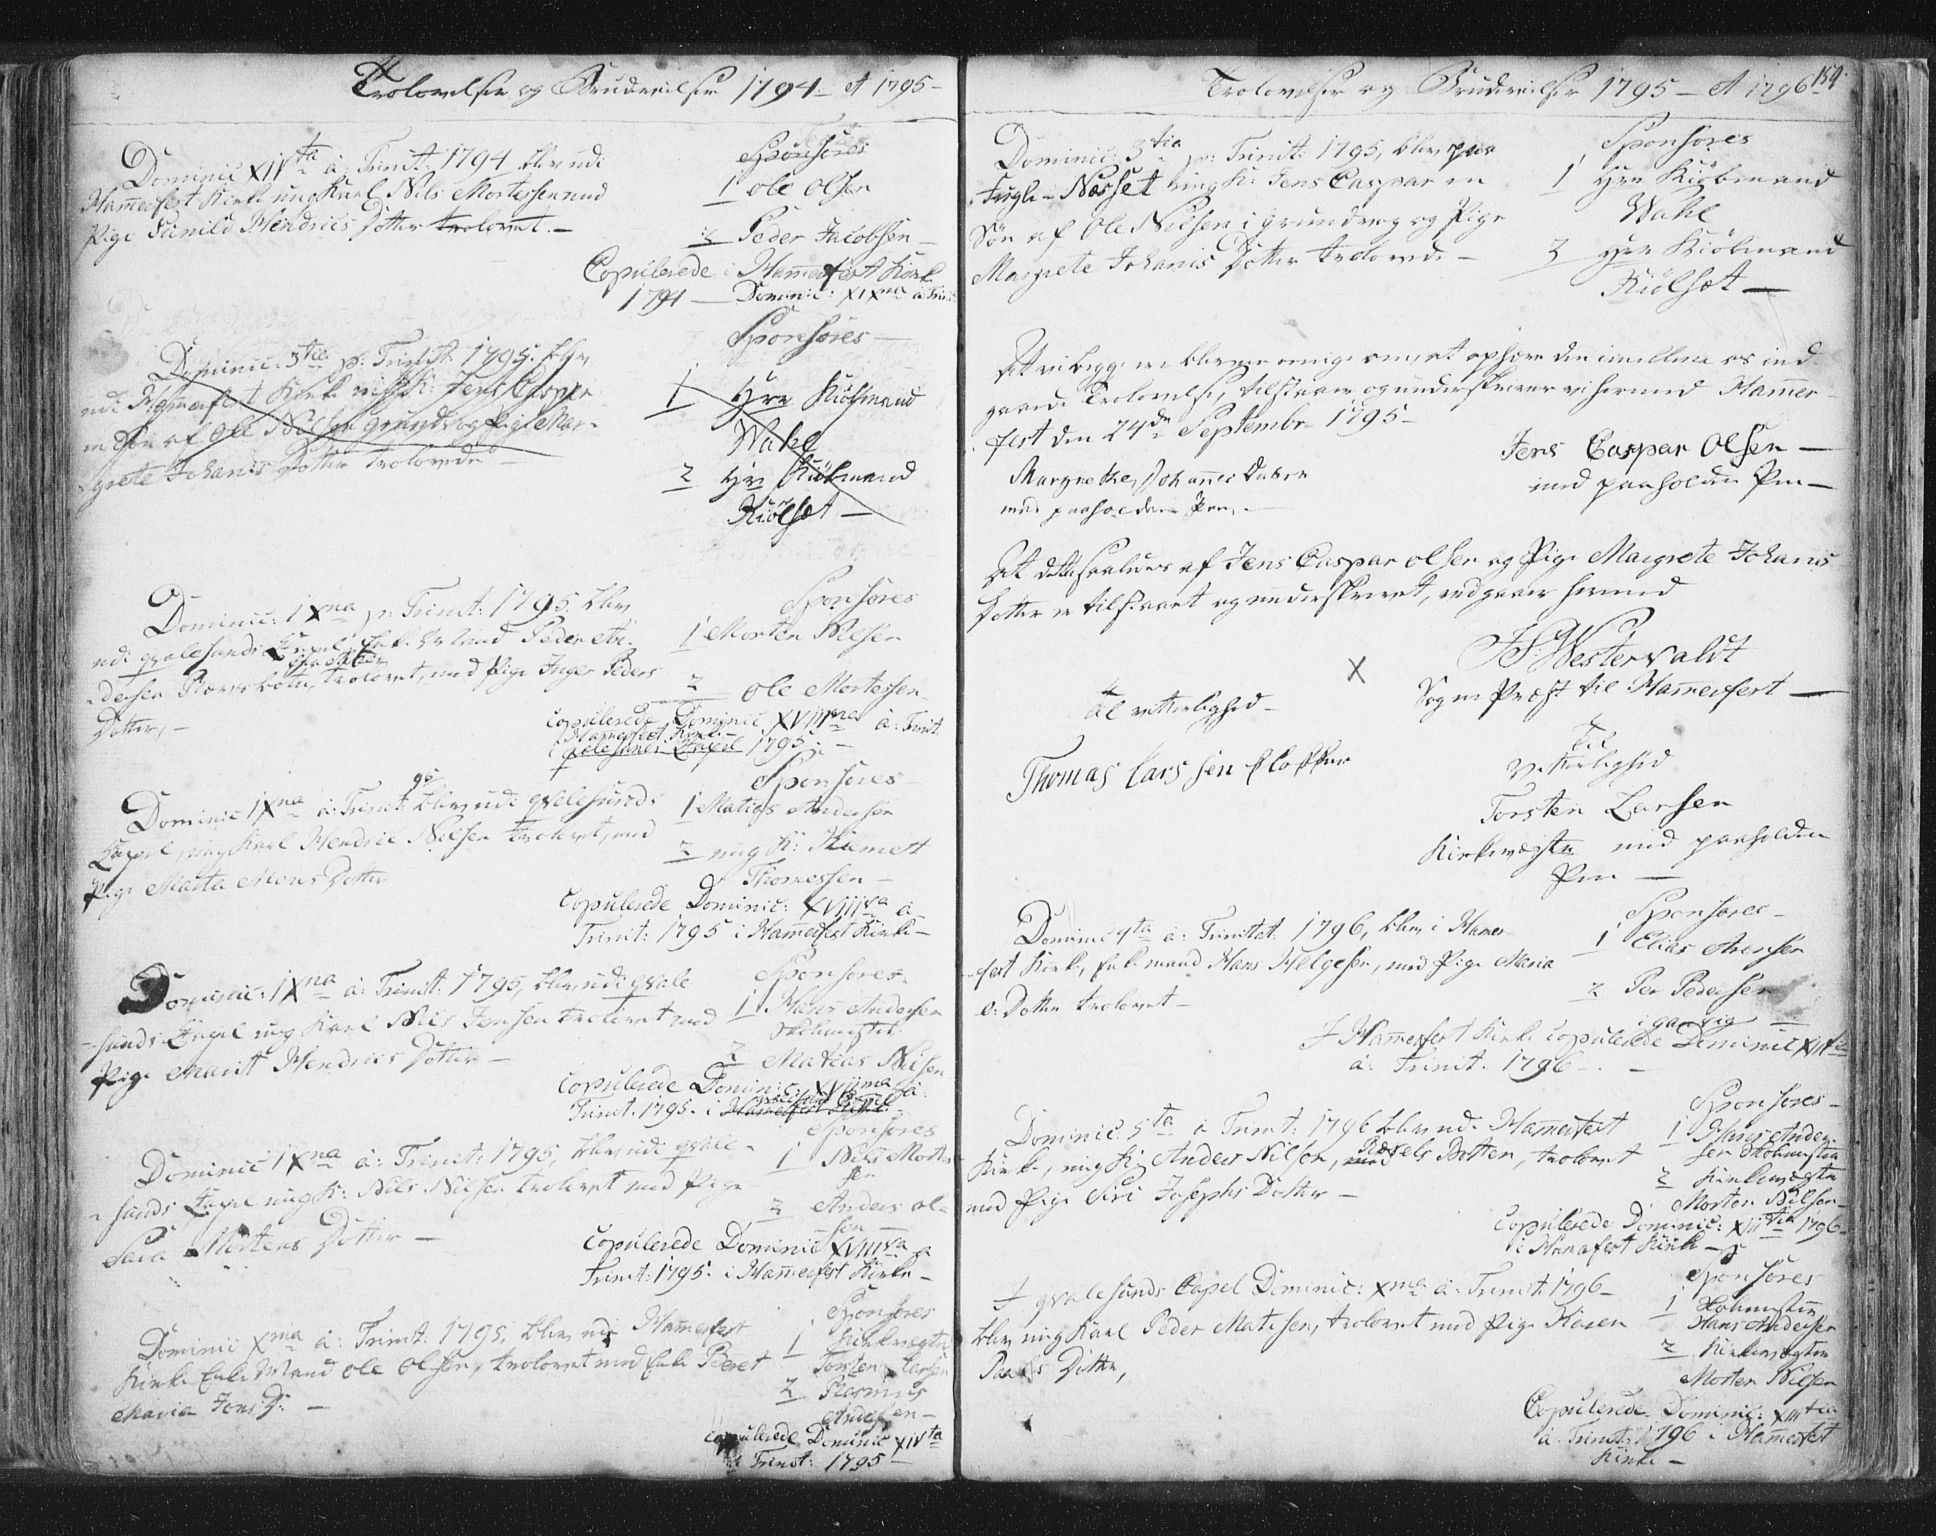 Trolovelser og Brudevielser 1794 - et 1795 -
Dominic XIVta à: Trinit: 1794 blev udi
Hamerfest Kirke ung Karl Nils Mortessen med
Pige Gunild Hendrics Dotter trolovet. -
Sponsores
1 Ole Olsen
2 Peder Jacobsen -
Copulerede i Hamerfest Kirke
1794 - Dominic: XIXna à Trinit
Dominic: 3tia p: Trinit 1795. blev
udi Hamerfest Kirke ung K: Jens Casper
en Søn af Ole Nilsen grundvog og Pige Mar-
grete Johanis Dotter trolovede -
Sponsores -
1 Hrr Kiøbmand
Wahl
2 Hrr Kiøbmand
Kiølset -
Dominic: IXna p: Trinit: 1795. blev
udi qvalesunds Capel Enke Mand Peder
dersen trolovet, med Pige Inger Peders
Dotter, -
Sponsores
1 Morten Nilsen
2 Ole Mortessen
Copulerede Dominic XVIIIva à: Trinit
Hamerfest Kirke -
i qvalesunds Capel 1795. -
Dominic IXna à: Trinit 95 blev udi qvalesunds
Capel, ung Karl Hendric Nilsen trolovet, med
Pige Marta Mons Dotter
Sponsores -
1 Matias Andersen
2 ung K: Klemet
Thomessen -
Copulerede Dominic: XVIIIva à
Trinit: 1795 i Hamerfest Kirke -
Dominic: IXna à: Trinit: 1795, blev udi qvale
sunds Capel ung Karl Nils Jensen trolovet med
Pige Marit Hendrics Dotter -
Sponsores -
1 Hans Andersen
2 Matias Nilsen
Copulerede Dominic: XVIIma à:
Trinit. 1795. i Hamerfest Kirke
qvalesunds Capel
Dominic IXna à: Trinit: 1795, blev udi qvale -
sunds Capel ung K: Nils Nilsen trolovet med Pige
Sara Mortens Dotter -
Sponsores
1 Nils Mortes
sen
2 Anders ol-
sen -
Copulerede Dominic XVIIIva à
Trinit: 1795. i Hamerfest Kirke -
Dominic Xma à: Trinit: 1795, blev udi Hamerfest
Kirke Enke Mand Ole Olsen, trolovet med Enke Beret
Maria Jons D: -
Sponsores
1 Kirkevægter
Torsten Larsen
2 Rasmus
Andersen -
Copulerede Dominic XIVta
à Trinit: 1795 -
Trolovelser og Brudevielser 1795 - et 1796
154.
Dominic: 3tia p: Trinit: 1795, blev paa
Fugle-Næsset ung K: Jens Caspar en
Søn af Ole Nilsen i grundvog og Pige
Margrete Johanis Dotter trolovede -
Sponsores
1 Hrr Kiøbmand
Wahl
2 Hrr Kiøbmand
Kiølset -
At vi begge ere blevne enige om at ophæve den imellem os ind-
gaaede Trolovelse, tilstaaer og underskriver vi hermed Hamer-
fest den 24de Septembr 1795 -
Jens Caspar Olsen -
med paaholden Pen -
Margrethe Johannes Datter
med paaholden Pen, -
At dette saaledes af Jens Caspar Olsen og Pige Margrete Johanis
Dotter er tilstaaet og underskrevet, vidgaaer hermed
J S: Westervaldt
Sogne Præst til Hamerfest -
X
til vitterlighed -
Thomas Larssen Klokker
Til
Vitterlighed
Torsten Larsen
Kirkevægter med paaholden
Pen -
Dominic 4ta à: Trinitat. 1796, blev i Hamer-
fest Kirke, Enkemand Hans Helgesen, med Pige Maria
O: Dotter trolovet -
Sponsores -
1 Elias Arensen
2 Per Pedersen
I Hamerfest Kirke Copulerede Dominic XIVta
à: Trinit. 1796 -
Dominic: 5ta à Trinit: 1796 blev udi Hamerfest
Kirke, ung K: Anders Nilsen, Botten, trolovet
med Pige Siri Josephs Dotter -
Sponsores -
1 Hans Ander-
sen
2 Kirkevægter
Morten Nilsen -
Copulerede Dominic: XIIItia 1796
i Hamerfest Kirke -
I qvalesunds Capel Dominic: Xma à: Trinit: 1796 -
blev ung Karl Peder Matisen, trolovet med Pige Karen
Dotter,
Sponsores
1
Hans Andersen
2 Kirkevægter
Morten Nilsen
Copulerede Dominic: XIIItia
à: Trinit: 1796 i Hamerfest
Kirke -